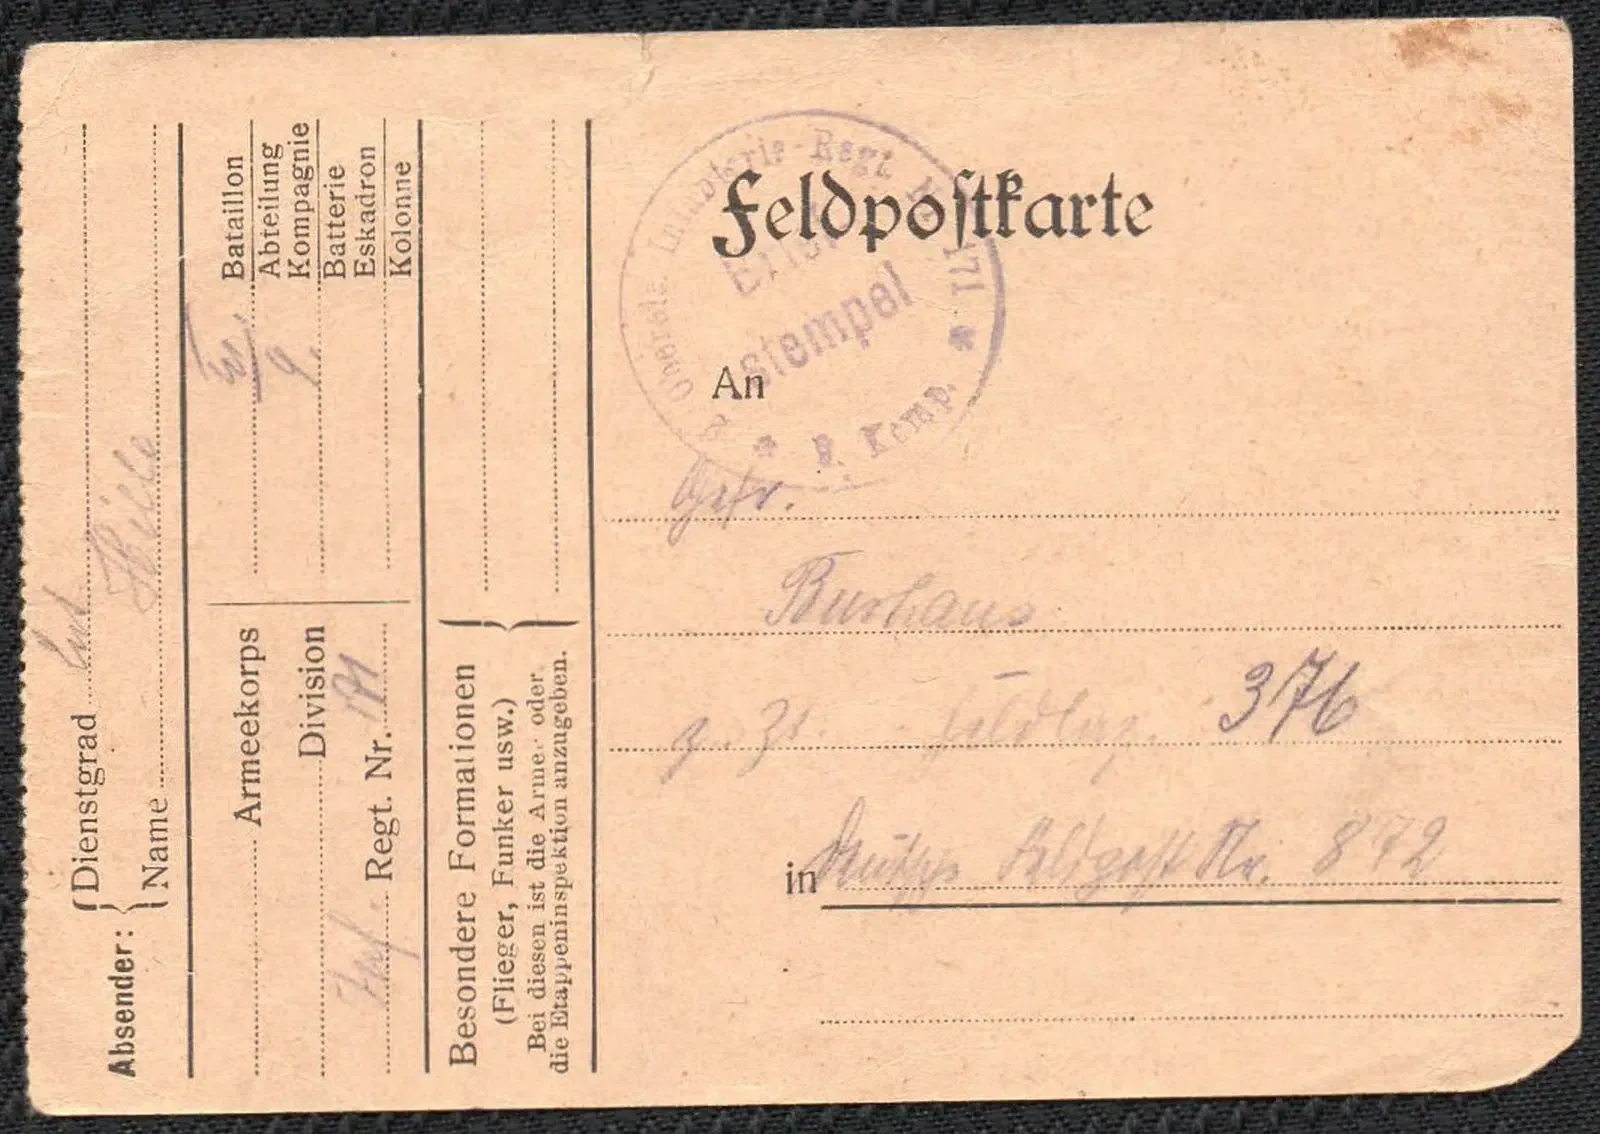 Feldpostkarte
2. Oberels. Infanterie-Regt. Nr. 171
* 9. Komp. *
stempel
An
Gefr.
Burhaus
z. Zt. Feldlaz. 376
in Deutsche Feldpost Nr. 872
Absender:
Dienstgrad
Name
Bataillon
Abteilung
Kompagnie
Batterie
Eskadron
Kolonne
9.
Armeekorps
Division
Inf. Regt. Nr. 171
Besondere Formationen
(Flieger, Funker usw.)
Bei diesen ist die Armee oder
die Etappeninspektion anzugeben.